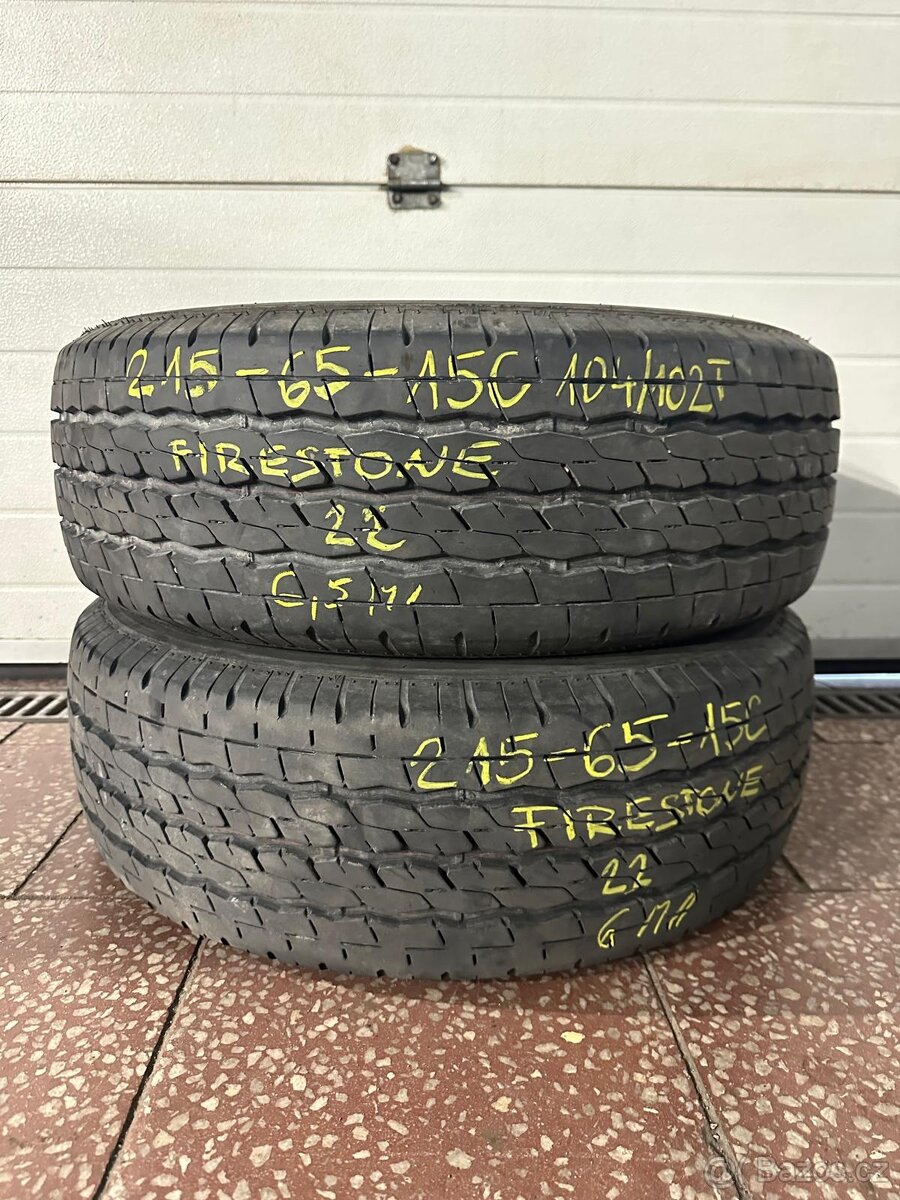 215-65-15C 104/102T
FIRESTONE
22
6,5 MM
215-65-15C
FIRESTONE
22
6 MM
Bazos.cz